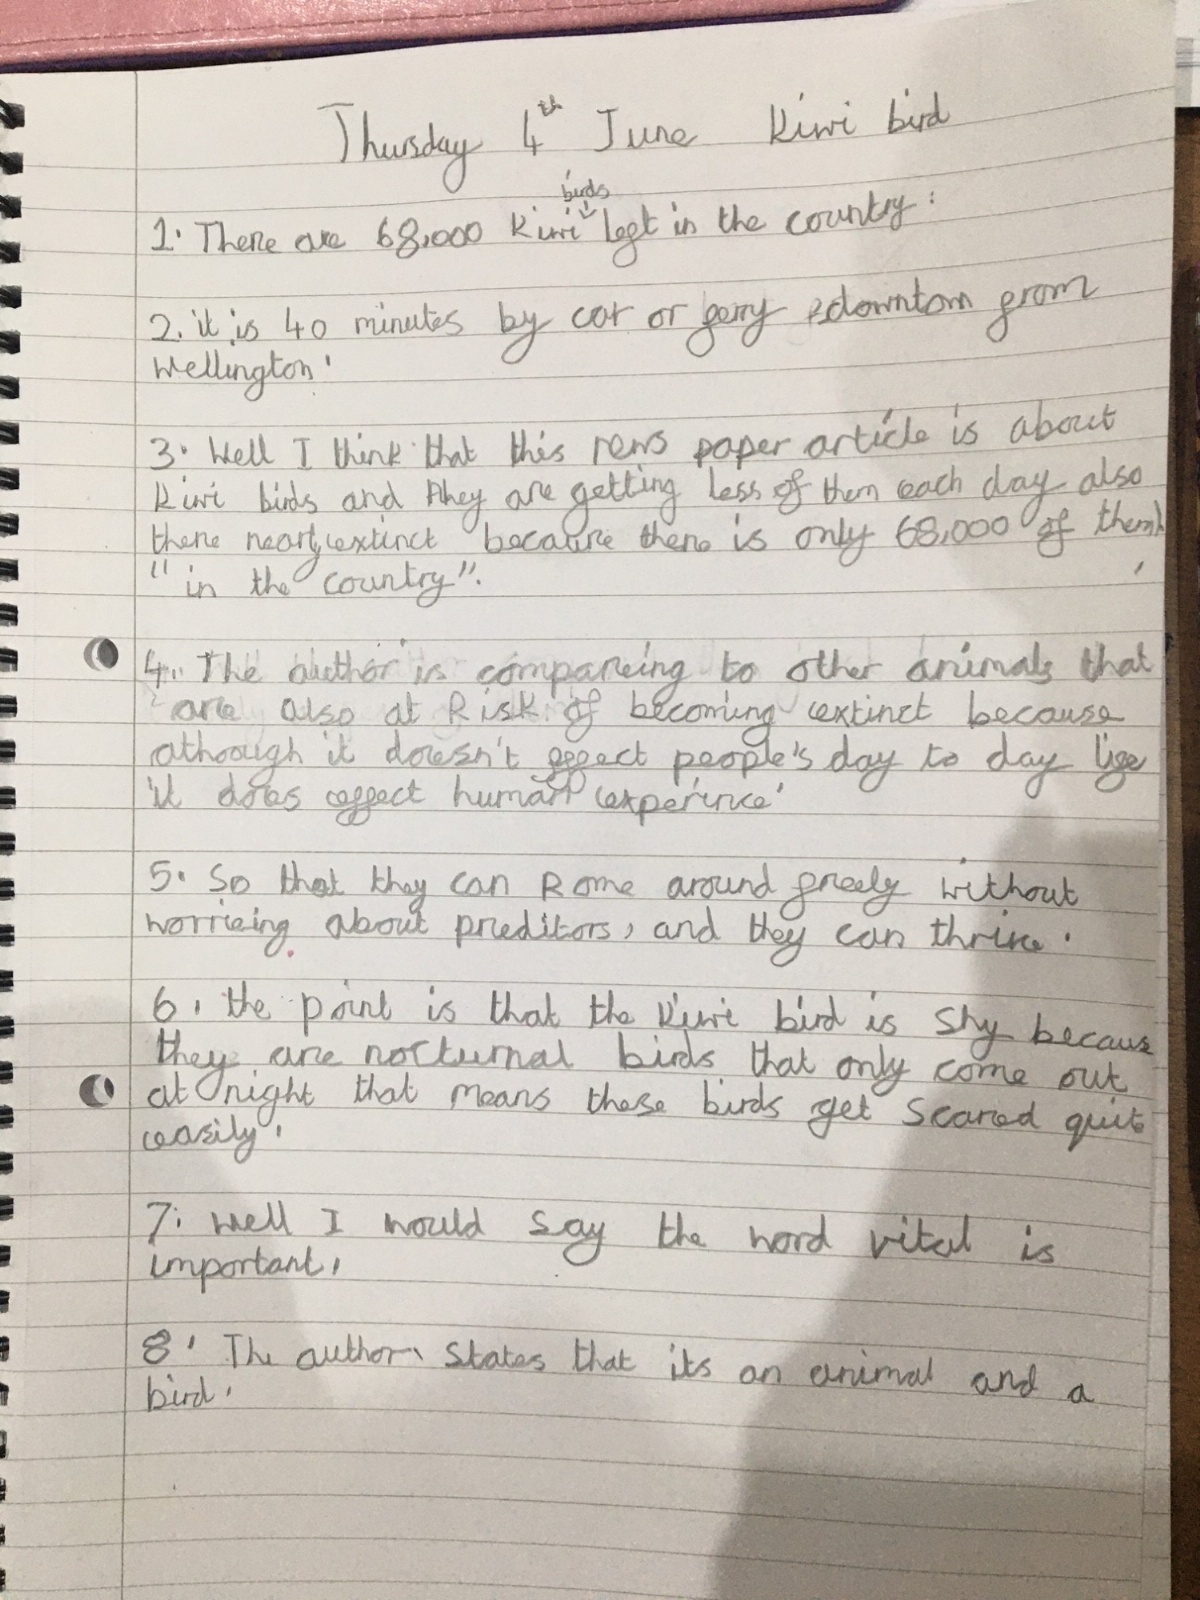 Thursday 4th June Kiwi bird
birds
1. There are 68,000 Kiwi left in the country.
2. it is 40 minutes by car or ferry downtown from
Wellington.
3. Well I think that this news paper article is about
Kiwi birds and they are getting less of them each day also
there nearly extinct because there is only 68,000 of them
"in the country".
4. The author is compareing to other animals that
are also at Risk of becoming extinct because
although it doesn't effect people's day to day life
it does effect human experince.
5. So that they can Rome around freely without
worrieing about preditors, and they can thrive.
6. the point is that the Kiwi bird is Shy becaus
they are nocturnal birds that only come out
at night that means these birds get Scared quite
easily.
7. Well I would say the word vital is
important.
8. The author States that its an animal and a
bird.